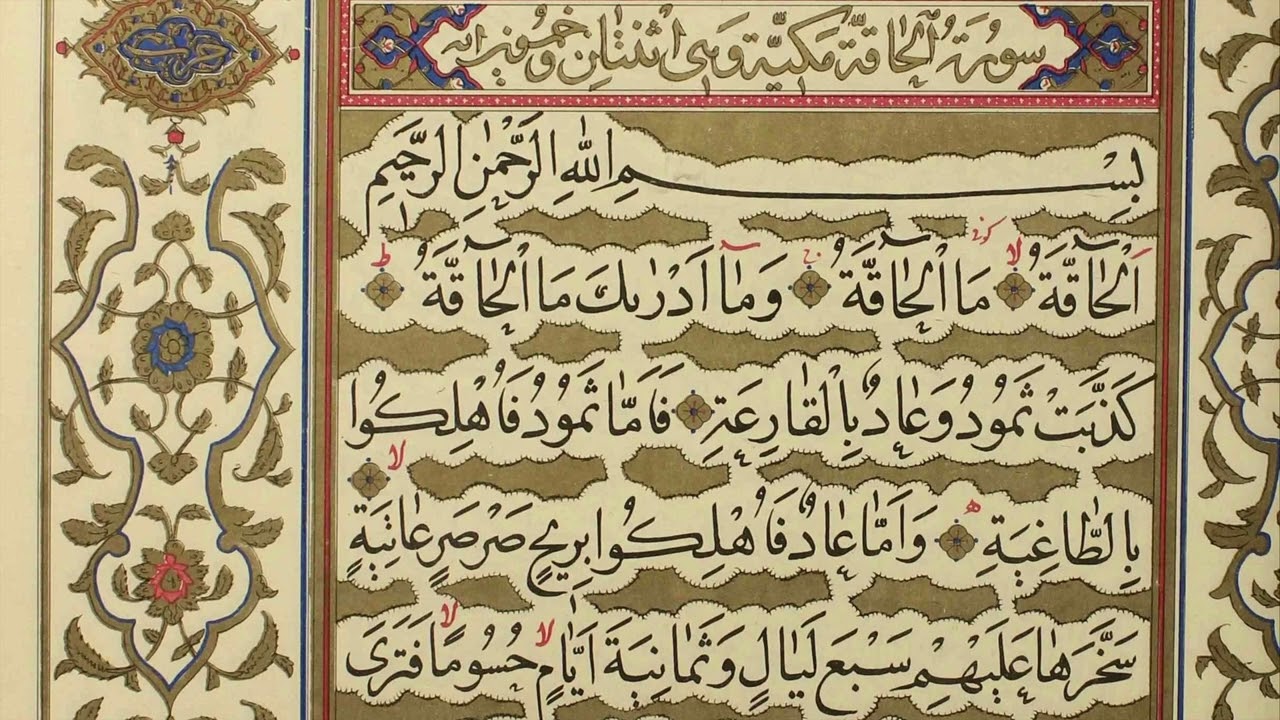 سورة الحاقة مكية وهى اثنتان وخمسون اية
حزب
بِسْمِ اللّٰهِ الرَّحْمٰنِ الرَّحٖيمِ
اَلْحَٓاقَّةُ لا مَا الْحَٓاقَّةُ ج وَمَٓا اَدْرٰيكَ مَا الْحَٓاقَّةُ ط
كَذَّبَتْ ثَمُودُ وَعَادٌ بِالْقَارِعَةِ فَاَمَّا ثَمُودُ فَاُهْلِكُوا
بِالطَّاغِيَةِ وَاَمَّا عَادٌ فَاُهْلِكُوا بِرٖيحٍ صَرْصَرٍ عَاتِيَةٍ لا
سَخَّرَهَا عَلَيْهِمْ سَبْعَ لَيَالٍ وَثَمَانِيَةَ اَيَّامٍ لا حُسُومًا لا فَتَرَى